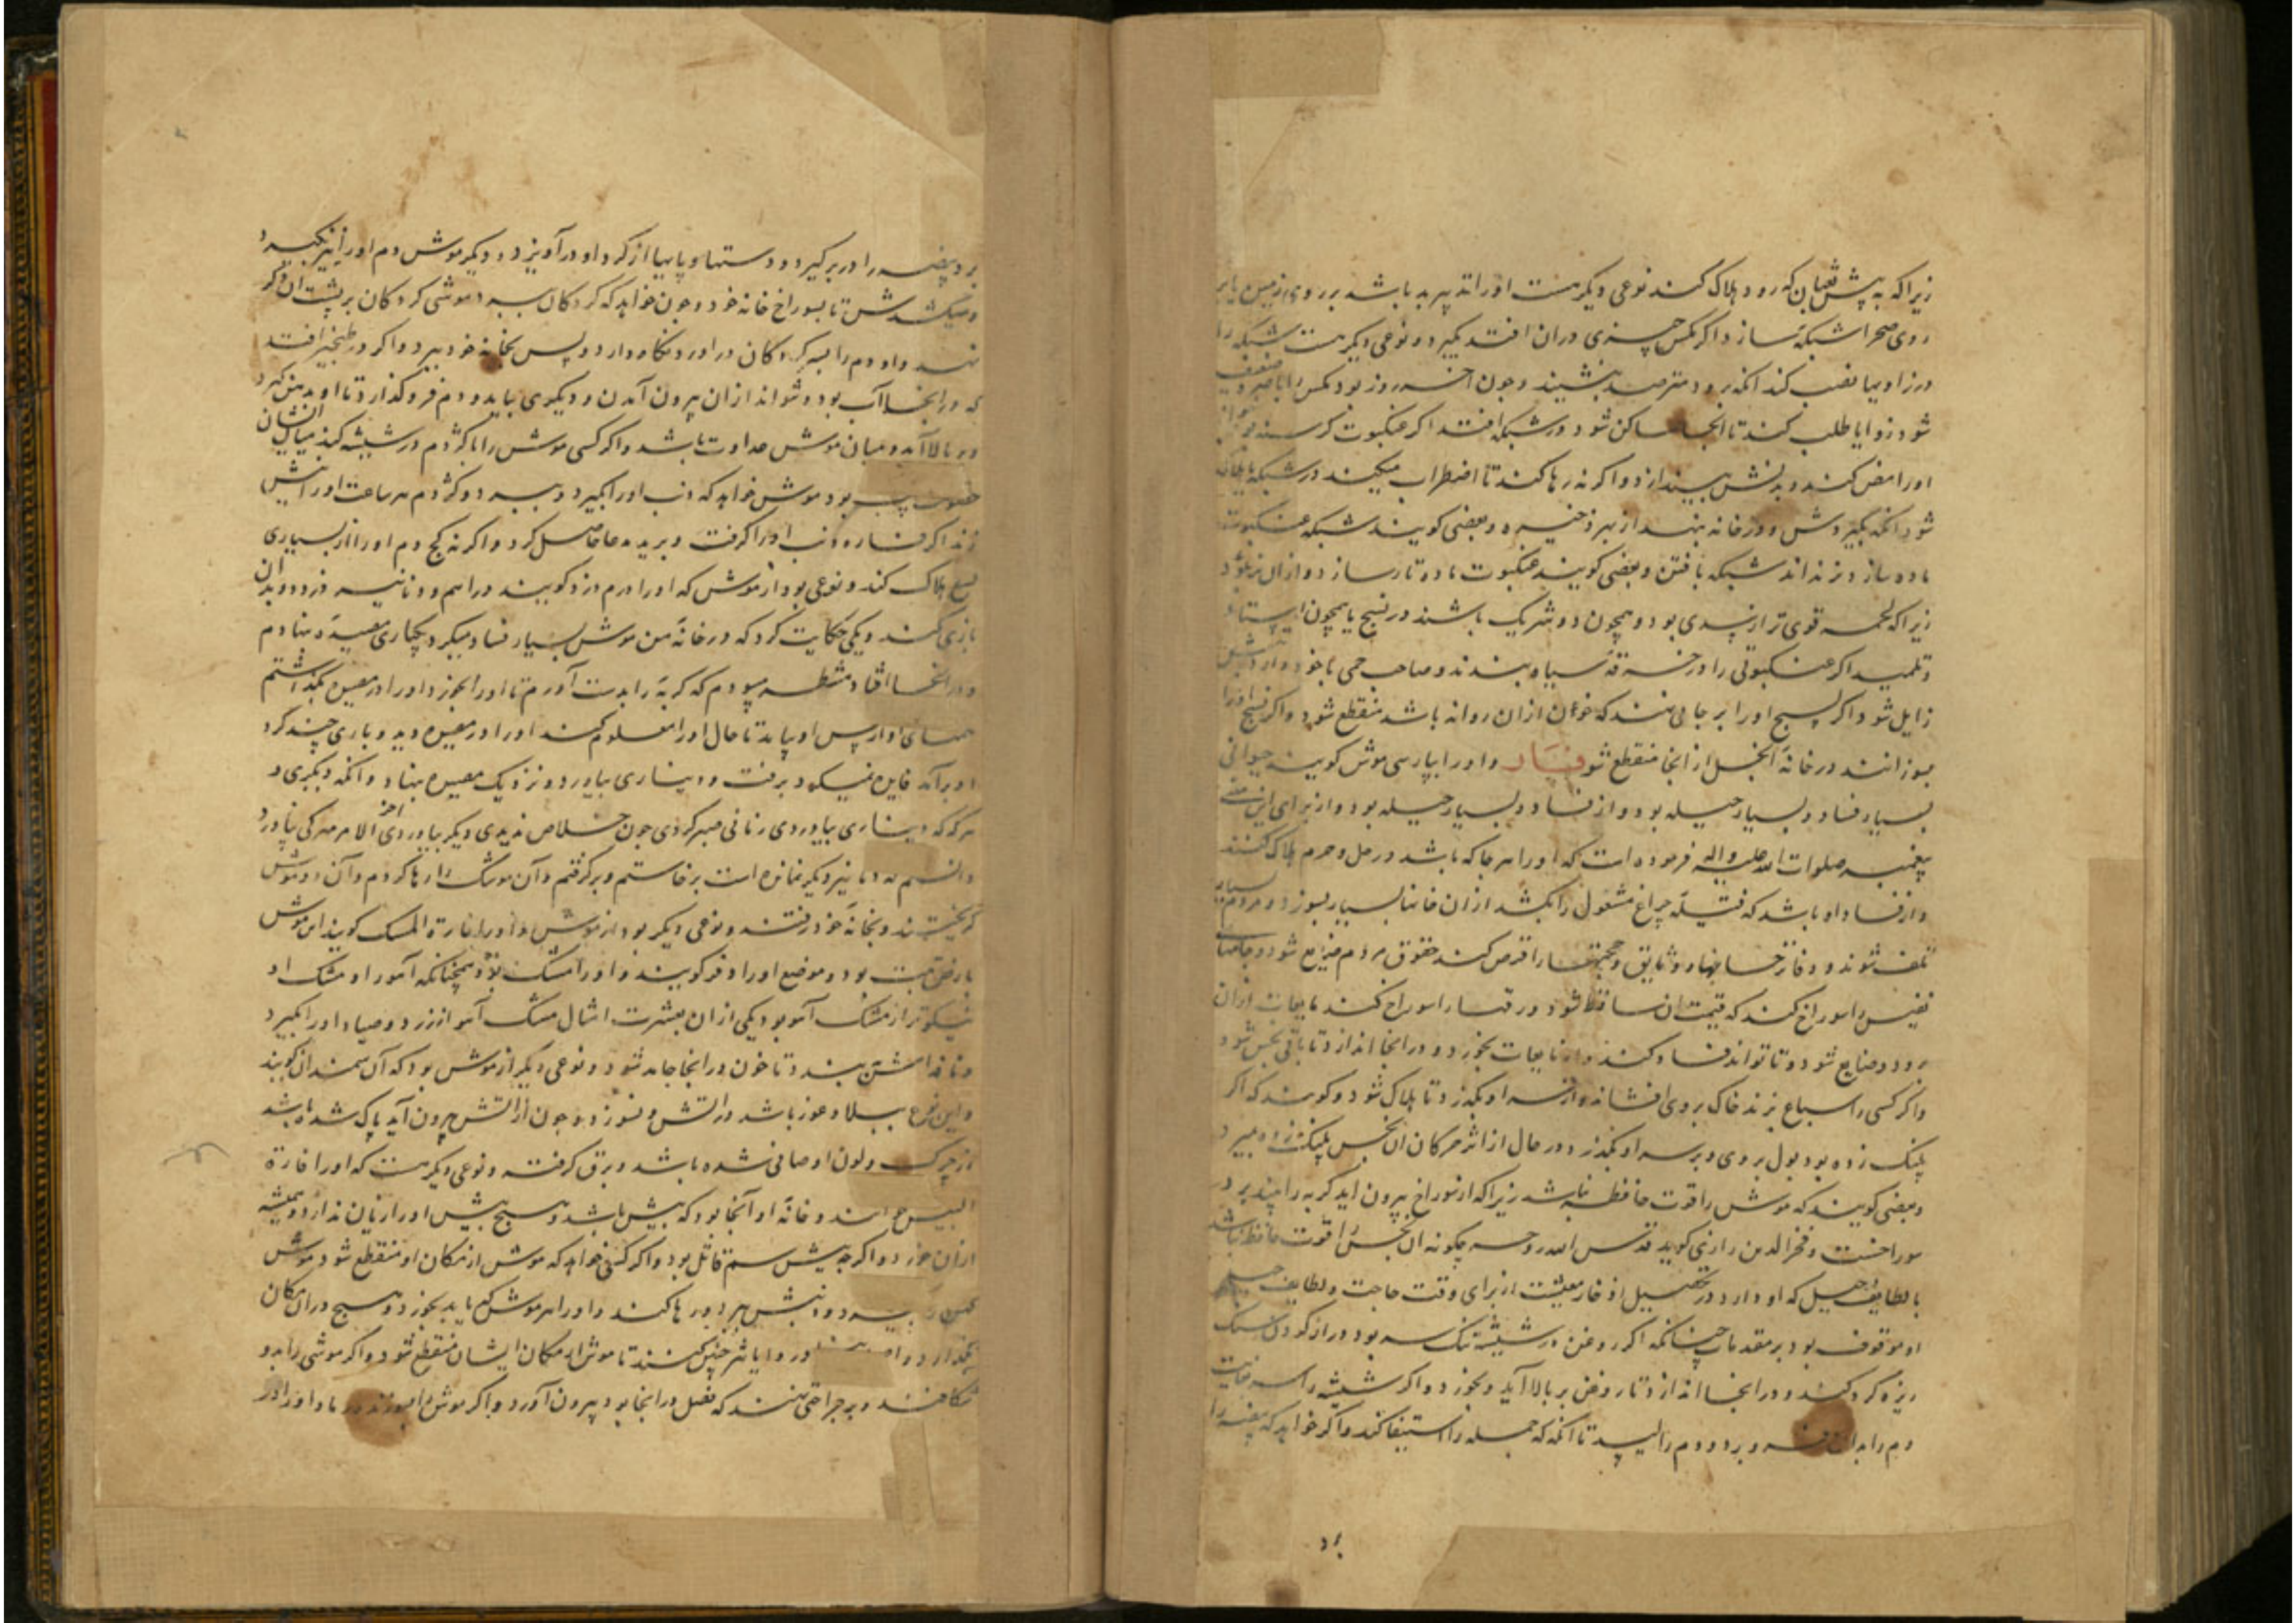 زیرا که به پیش ثعبان که رود هلاک کند نوعی دیکر هست اورا تدبیر بد باشد بر روی زمین یا بر
روی صحرا شبکه سازد اکر مکس چیزی دران افتد بکیرد و نوعی دیکر هست شبکه را
در زاویها نصب کند انکه برود مترصد بنشیند وجون اخر روز بود مکس را باصره ضعیف
شود زوایا طلب کند تا انجا ساکن شود در شبکه افتد اکر عنکبوت کرسنه بود
اورا مص کند و بدنش بیندازد واکر نه رها کند تا اضطراب میکند در شبکه تا هلاک
شود انکه بکیردش و در خانه بنهد از بهر ذخیره و بعضی کویند شبکه عنکبوت
ماده سازد و نر نداند شبکه بافتن و بعضی کویند عنکبوت ماده تار سازد و ازان نر پود
زیرا که لحمه قوی تر از سدی بود و همچون دو شریک باشند در نسج یا همچون استاد
و تلمید اکر عنکبوتی را در خرقه سیاه بندند و صاحب حمی با خود دارد تبش
زایل شود اکر نسج اورا بر جایی نهند که خون ازان روانه باشد منقطع شود واکر نسج اورا
بسوزانند در خانه النخل از انجا منقطع شود فـار واورا بپارسی موش کویند حیوانی
بسیار فساد و بسیار حیله بود و از فساد و بسیار حیله بود و از برای این معنی
پیغمبر صلوات الله علیه واله فرموده است که اورا هر جا که باشد در حل و حرم هلاک کنند
و از فساد او باشد که فتیله چراغ مشعول را بکشد ازان خانها بسیار بسوزد و مردم بسیار
تلف شوند و دفاتر حسابها و وثایق و حجتها را قرض کند حقوق مردم ضایع شود و جامهاء
نفیس را سوراخ کند که قیمت ان ساقط شود و رقها را سوراخ کند مایعات ازان
برود و ضایع شود و تا تواند فساد کند و از مایعات بخورد و در انجا اندازد تا باقی نجس شود
واکر کسی را سباع بزند خاک بر وی افشاند و از سر او بکذرد تا هلاک شود و کویند که اکر
پلنک زده بود بول بر وی و بر سر او بکذرد در حال از اثر حرکات ان نجس پلنک زده بمیرد
و بعضی کویند که موش را قوت حافظه نباشد زیرا که از سوراخ بیرون اید کربه را بیند برود در
سوراخست و فخر الدین رازی کوید قدس الله روحه چکونه ان نجس را قوت حافظه نباشد
با لطایف حیل که او دارد در تحصیل اذخار معیشت از برای وقت حاجت و لطایف حیل
او موقوف بود بر مقدمات چنانکه اکر روغن در شیشه تنک سر بود دراز کردن سنک
ریزه کرد کند و در انجا اندازد تا روغن بر بالا آید و بخورد واکر شیشه را سر
دم را بدان فرو برد و دم را لیسد تا انکه جمله را استیفا کند واکر خواهد که بیضه را
برد
برد بیضه را در بر کیرد و دستها و پایها از کرد او در آویزد و دیکر موش دم اورا نیز بکیرد
و میکشدش تا بسوراخ خانه خود و چون خواهد که کردکان ببرد موشی کردکان بر پشت ان دیکر
نهد و او دم را بسر کردکان در آورد و نکاه دارد و پس بخانه خود برد و اکر در طنجیر افتد
که در انجا آب بود و نتواند ازان بیرون آمدن و دیکری بیاید و دم فرو کذارد تا او بدنش کیرد
و بر بالا آمد و میان موش عداوت باشد واکر کسی موش را با کژدم در شیشه کند میان ایشان
خصومت بود موش خواهد که ذنب اورا بکیرد و ببرد و کژدم هر ساعت اورا نیش
زند اکر فاره ذنب اورا کرفت و ببرید مدعا حاصل کرد و اکر نه کج دم اورا از بسیاری
لسع هلاک کند و نوعی بود از موش که اورا درم دزد کویند دراهم و دنانیر دزدد و بدان
بازی کند و یکی حکایت کرد که در خانه من موش بسیار فساد میکرد یکباری مصیده بنهادم
و در انجا افتاد منتظر میبودم که کربه را بدست آورم تا اورا بخورد اورا در مصیده بکذاشتم
همتای او از پس او بیامد تا حال اورا معلوم کند اورا در مصیده دید و باری چند کرد
او برآمد فایده نمیکرد برفت و دیناری بیاورد و نزدیک مصیده بنهاد و انکه دیکری و
هر کره که دیناری بیاوردی زمانی صبر کردی چون خلاص ندیدی دیکر بیاوردی اخر الامر هر کی نیاورد
دانستم که دنانیر دیکر نمانده است برخاستم و برکرفتم و آن موشک را رها کردم و آن دو موش
کریختند و بخانه خود رفتند و نوعی دیکر بود از موش و اورا فارة المسک کویند این موش
بارض تبت بود و موضع اورا دفر کویند و اورا مشک بود همچنانکه آهو را و مشک او
نیکوتر از مشک آهو بود یکی ازان بعشرت امثال مشک آهو ارزد و صیاد اورا بکیرد
و نافه اش بندد تا خون در انجا جامد شود و نوعی دیکر از موش بود که آن سمندان کویند
و این نوع ببلاد غور باشد در اتش و نسوزد و چون از اتش بیرون آید پاک شده باشد
از چرک و لون او صافی شده باشد و برق کرفته و نوعی دیکر هست که اورا فارة
البیش خوانند و خانه او آنجا بود که بیش باشد و هیچ بیش اورا زیان ندارد و همیشه
ازان خورد و اکرچه بیش سم قاتل بود و اکر کسی خواهد که موش از مکان او منقطع شود موش
بکیرد و دنبش ببرد و رها کند و اورا هر موش که یابد بخورد و هیچ دران مکان
نکذارد و در زوایا نثر کنند تا موش از مکان ایشان منقطع شود واکر موشی را بدو
شکافند و بر جراحتی نهند که نصل در انجا بود بیرون آورد واکر موش را بسوزند